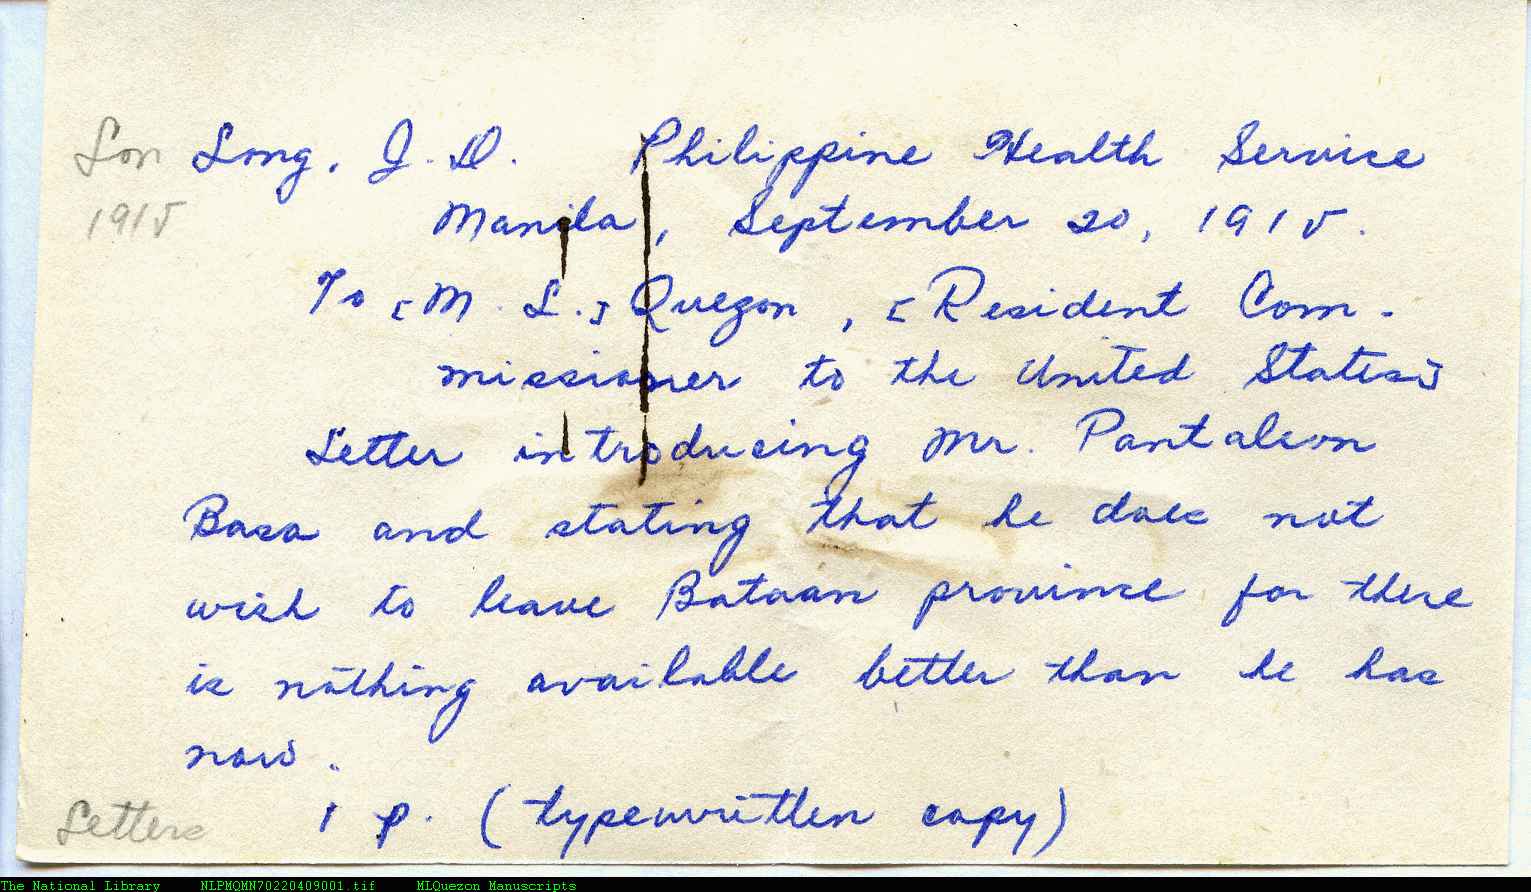 Lon Long, J. D. Philippine Health Service
1915 Manila, September 20, 1915.
To [M. L.] Quezon, [Resident Com-
missioner to the United States]
Letter introducing Mr. Pantaleon
Basa and stating that he does not
wish to leave Bataan province for there
is nothing available better than he has
now.
Letters 1 p. (typewritten copy)
The National Library NLPMQMN70220409001.tif MLQuezon Manuscripts